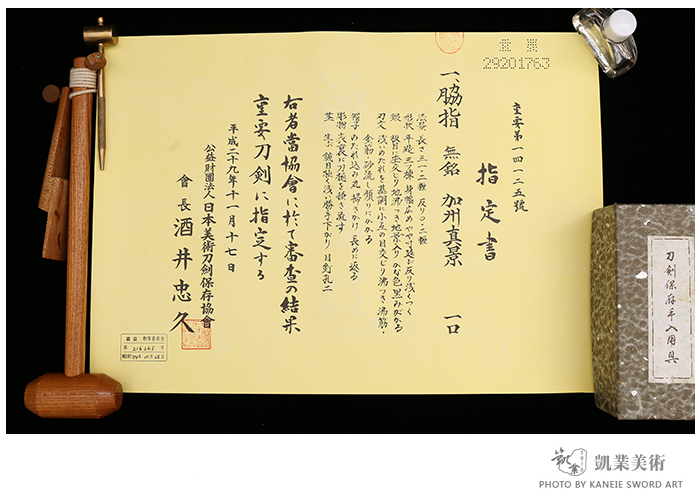 重要
29201763
重要第一四一二五號
指定書
一、脇指 無銘 加州真景 一口
法量 長さ三一・二糎 反り〇・二糎
形状 平造 三ツ棟 身幅広め やや寸延び 反り浅くつく
鍛 板目に杢交じり 地沸つき 地景入り かね色黒みがかる
刃文 浅いのたれを基調に小点の目交じり 沸つき 沸筋・
金筋・砂流し頻りにかかる
帽子 のたれ込み丸 掃きかけ 長めに返る
彫物 表裏に刀樋を掻き流す
茎 生ぶ 鑢目極く浅い勝手下がり 目釘孔二
右者當協會に於て審査の結果
重要刀剣に指定する
平成二十九年十一月十七日
公益財團法人日本美術刀劍保存協會
會長 酒井忠久
刀劍保存手入用具
凱業美術
PHOTO BY KANEIE SWORD ART